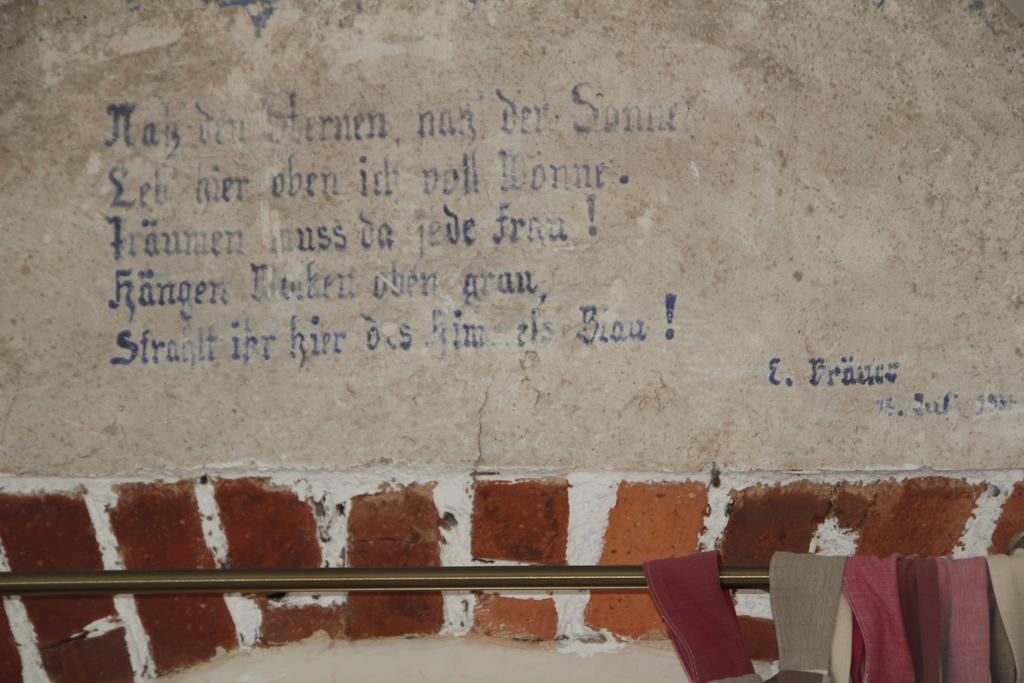 Nah den Sternen, nah der Sonne,
Leb' hier oben ich voll Wonne.
Träumen muss da jede Frau!
Hängen Wolken oben grau,
Strahlt ihr hier des Himmels Blau!
E. Bräuer
15. Juli